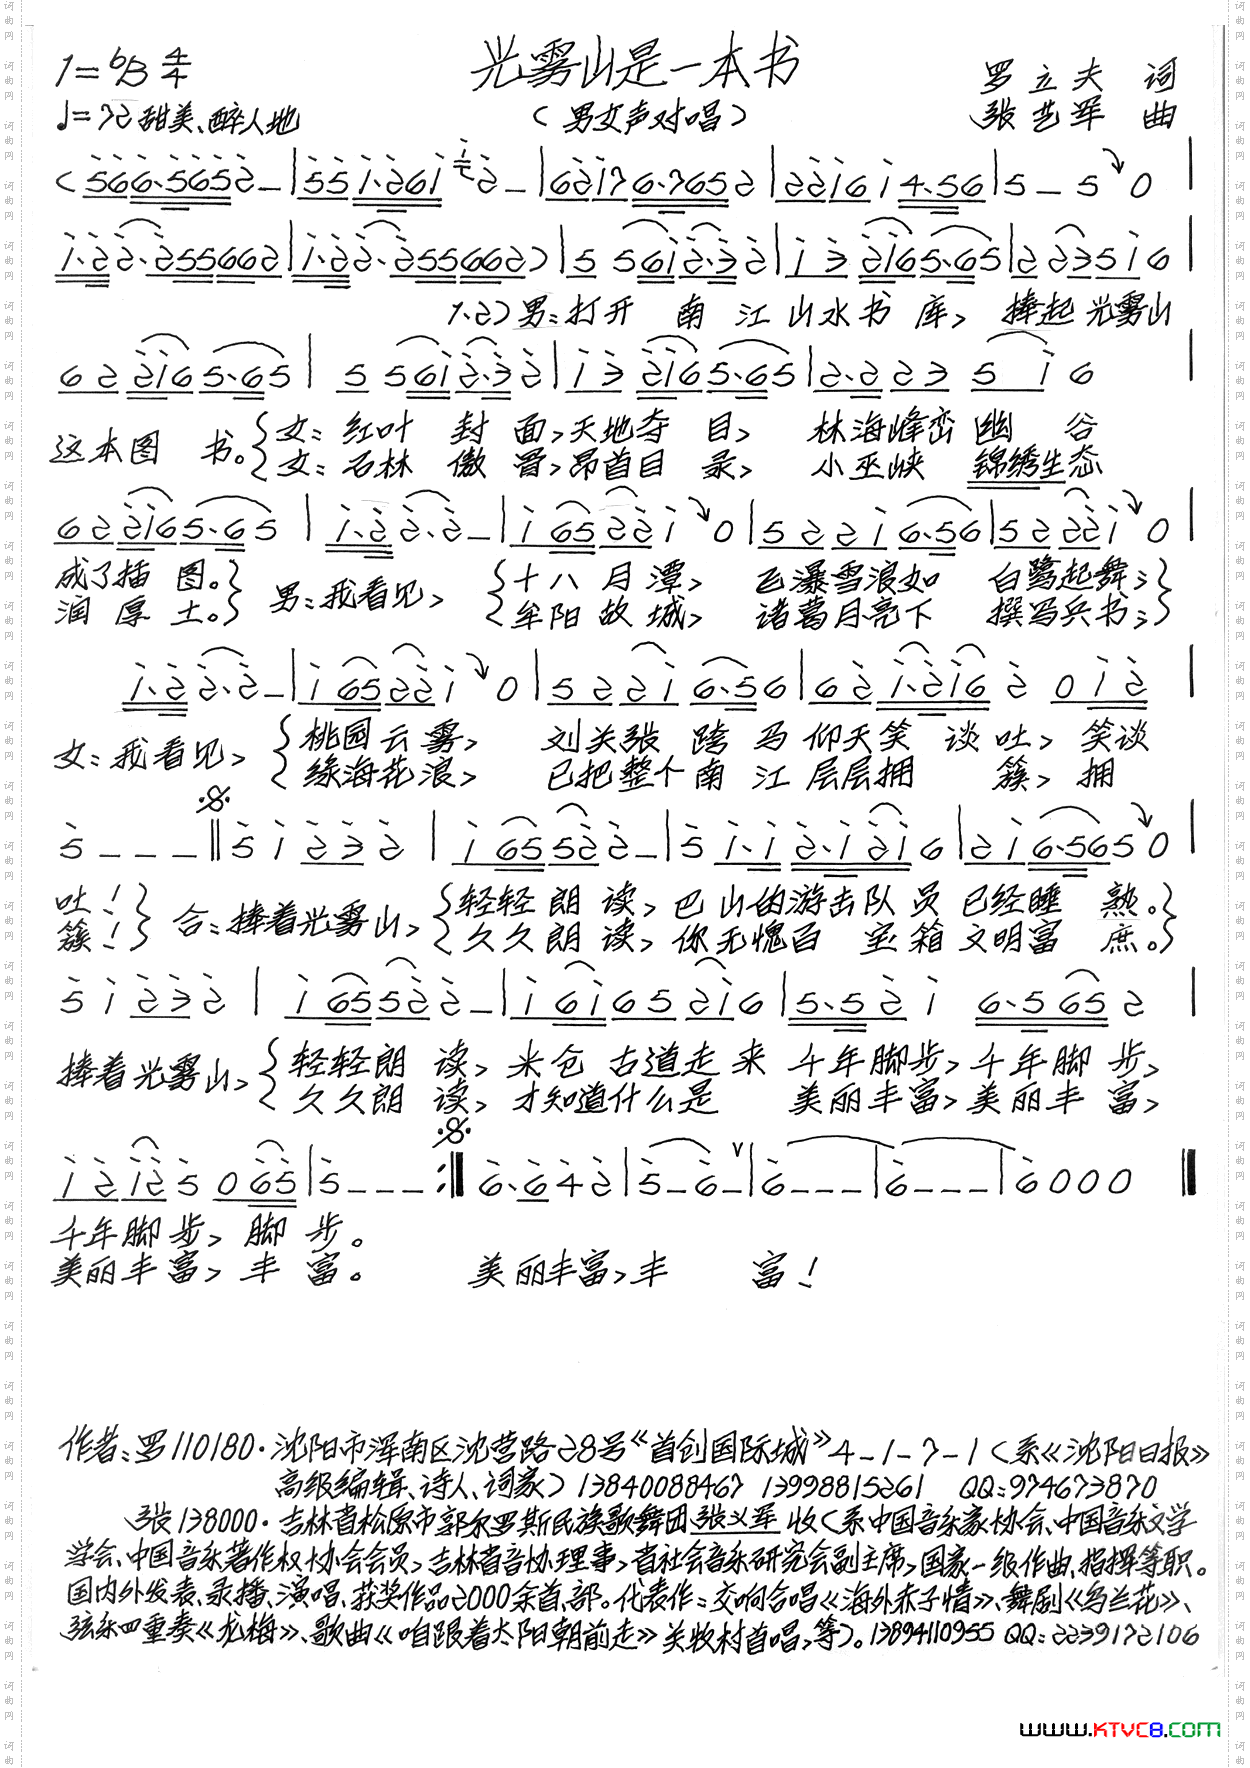 光雾山是一本书
1=♭B 4/4
罗立夫 词
♩=72 甜美、醉人地
（男女声对唱）
张艺军 曲
(566.5652 - | 551.261 2 - | 62176.7652 | 221614.56 | 5 - 5 0 |
1.22.2556662 | 1.22.2556662) | 5 5612.32 | 1 3 2165.65 | 2 23516 |
1.2)男：打开 南 江 山水书 库， 捧起光雾山
6 2 2165.65 | 5 5612.32 | 1 3 2165.65 | 2.2 2 3 5 1 6 |
这本图 书。{女：红叶 封 面，天地夺 目， 林海峰峦 幽 谷
{女：石林 傲 骨，昂首目 录， 小巫峡 锦绣生态
6 2 2165.65 | 1.22.2 - | 1 65221 0 | 5 2 2 1 6.56 | 5 2 221 0 |
成了插 图。} 男：我看见， {十八月潭， 飞瀑雪浪如 白鹭起舞；}
润 厚 土。} {牟阳故城， 诸葛月亮下 撰写兵书；}
1.22.2 - | 1 65221 0 | 5 2 2 1 6.56 | 6 2 1.216 2 0 1 2 |
女：我看见， {桃园云雾， 刘关张 跨 马 仰天笑 谈吐， 笑谈
{缘海花浪， 已把整个南 江 层层拥 簇， 拥
5 - - - ‖ 5 1 2 3 2 | 1 65522 - | 5 1.1 2.1 21 6 | 2 1 6.565 0 |
吐！} 合：捧着光雾山， {轻轻朗 读， 巴山的游击队 员 已经睡 熟。}
簇！} {久久朗 读， 你无愧百 宝 箱 文明富 庶。}
5 1 2 3 2 | 1 65522 - | 1 61 6 5 21 6 | 5.5 2 1 6.5 65 2 |
捧着光雾山， {轻轻朗 读， 米仓 古道走来 千年脚步，千年脚 步，
{久久朗 读， 才知道什么是 美丽丰富，美丽丰 富，
1 2 12 5 0 65 | 5 - - - :‖ 6.6 4 2 | 5 - 6 - | 6 - - - | 6 - - - | 6 0 0 0 ‖
千年脚步， 脚 步。
美丽丰富， 丰 富。 美丽丰富，丰 富！
作者：罗 110180·沈阳市浑南区沈营路28号《首创国际城》4-1-7-1（系《沈阳日报》
高级编辑、诗人、词家）13840088467 13998815261 QQ：974673870
张 138000·吉林省松原市郭尔罗斯民族歌舞团张义军 收（系中国音乐家协会、中国音乐文学
学会、中国音乐著作权协会会员，吉林省音协理事，省社会音乐研究会副主席，国家一级作曲、指挥等职。
国内外发表、录播、演唱、获奖作品2000余首、部。代表作：交响合唱《海外赤子情》、舞剧《乌兰花》、
弦乐四重奏《龙梅》、歌曲《咱跟着太阳朝前走》关牧村首唱，等）。13894110955 QQ：2239172106
www.KTVC8.com
词曲网